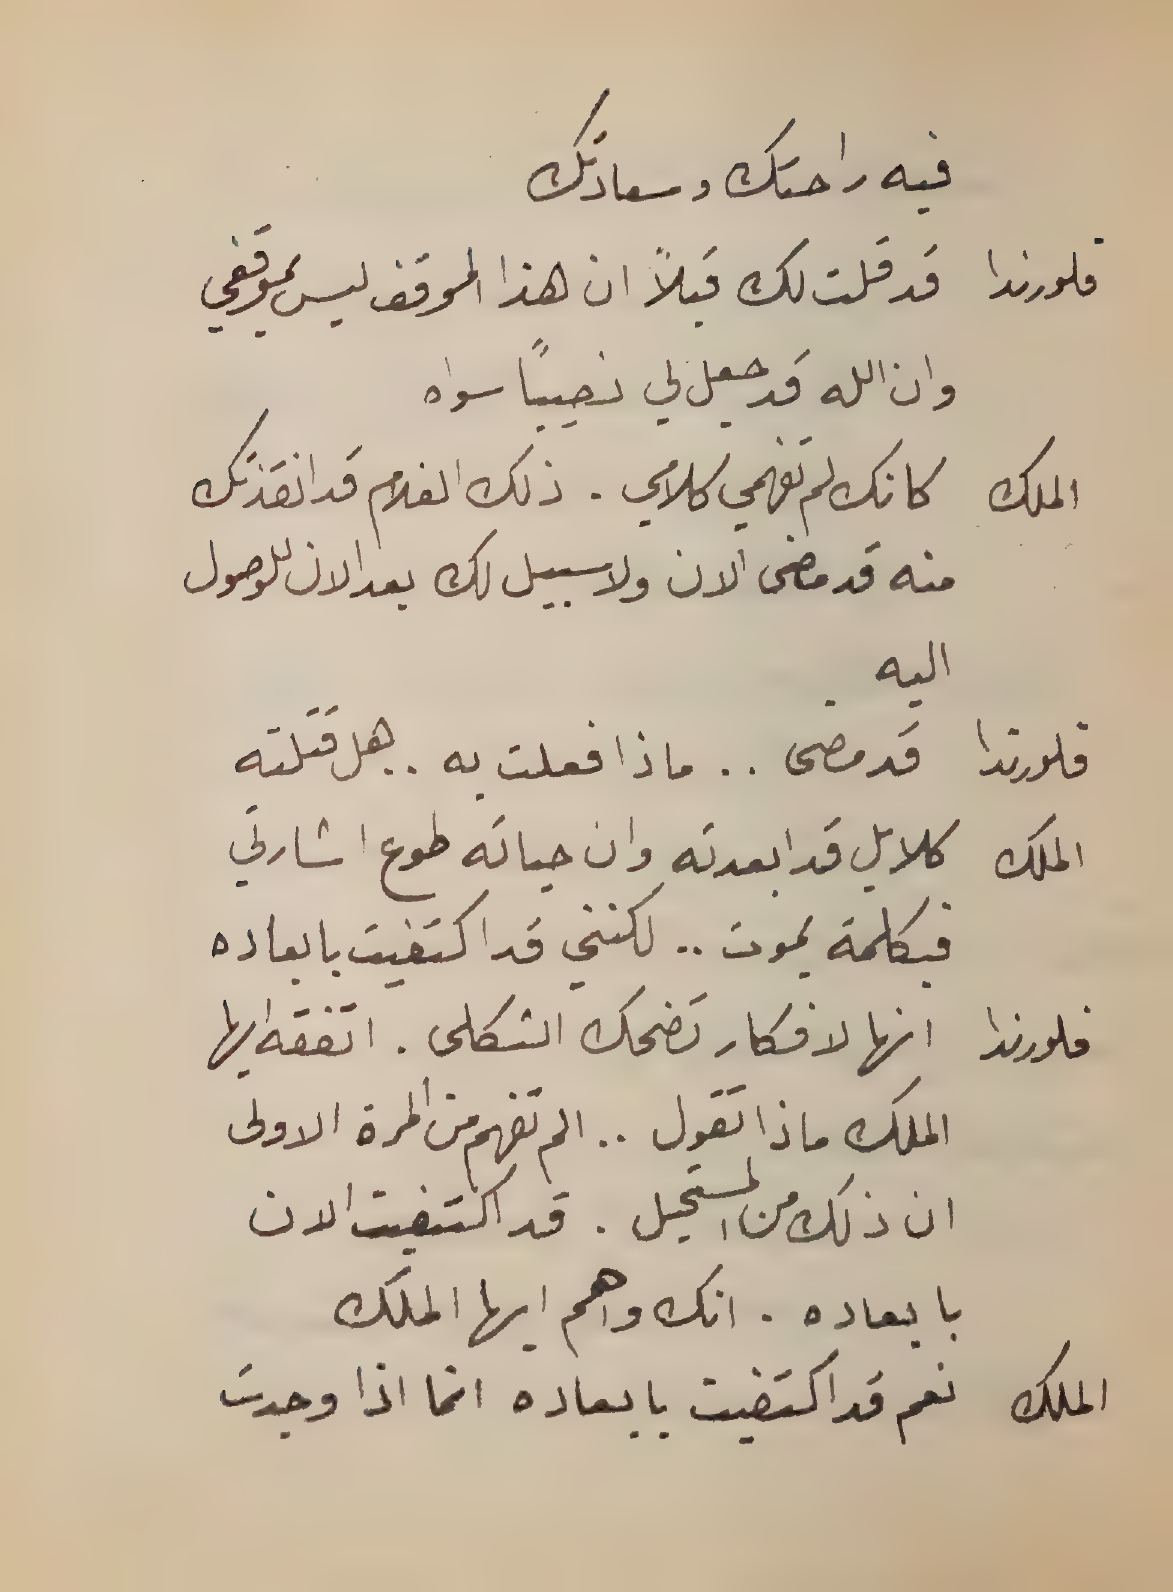 فيه راحتك وسعادتك
فلورندا قد قلت لك قبلاً ان هذا الموقف ليس بموقفي
وان الله قد جعل لي نصيباً سواه
الملك كانك لم تفهمي كلامي . ذلك الغلام قد انقذتك
منه قد مضى الان ولا سبيل لك بعد الان للوصول
اليه
فلورندا قد مضى .. ماذا فعلت به .. هل قتلته
الملك كلا بل قد ابعدته وان حياته طوع اشارتي
فبكلمة يموت .. لكنني قد اكتفيت بابعاده
فلورندا انها لافكار تضحك الثكلى . اتفقه ايها
الملك ماذا تقول .. الم تفهم من المرة الاولى
ان ذلك من المستحيل . قد اكتفيت الان
بابعاده . انك واهم ايها الملك
الملك نعم قد اكتفيت بابعاده انما اذا وجدت